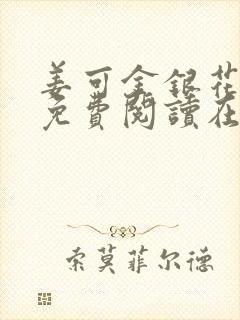 姜可金銀花
免費閱讀在
索莫菲尔德